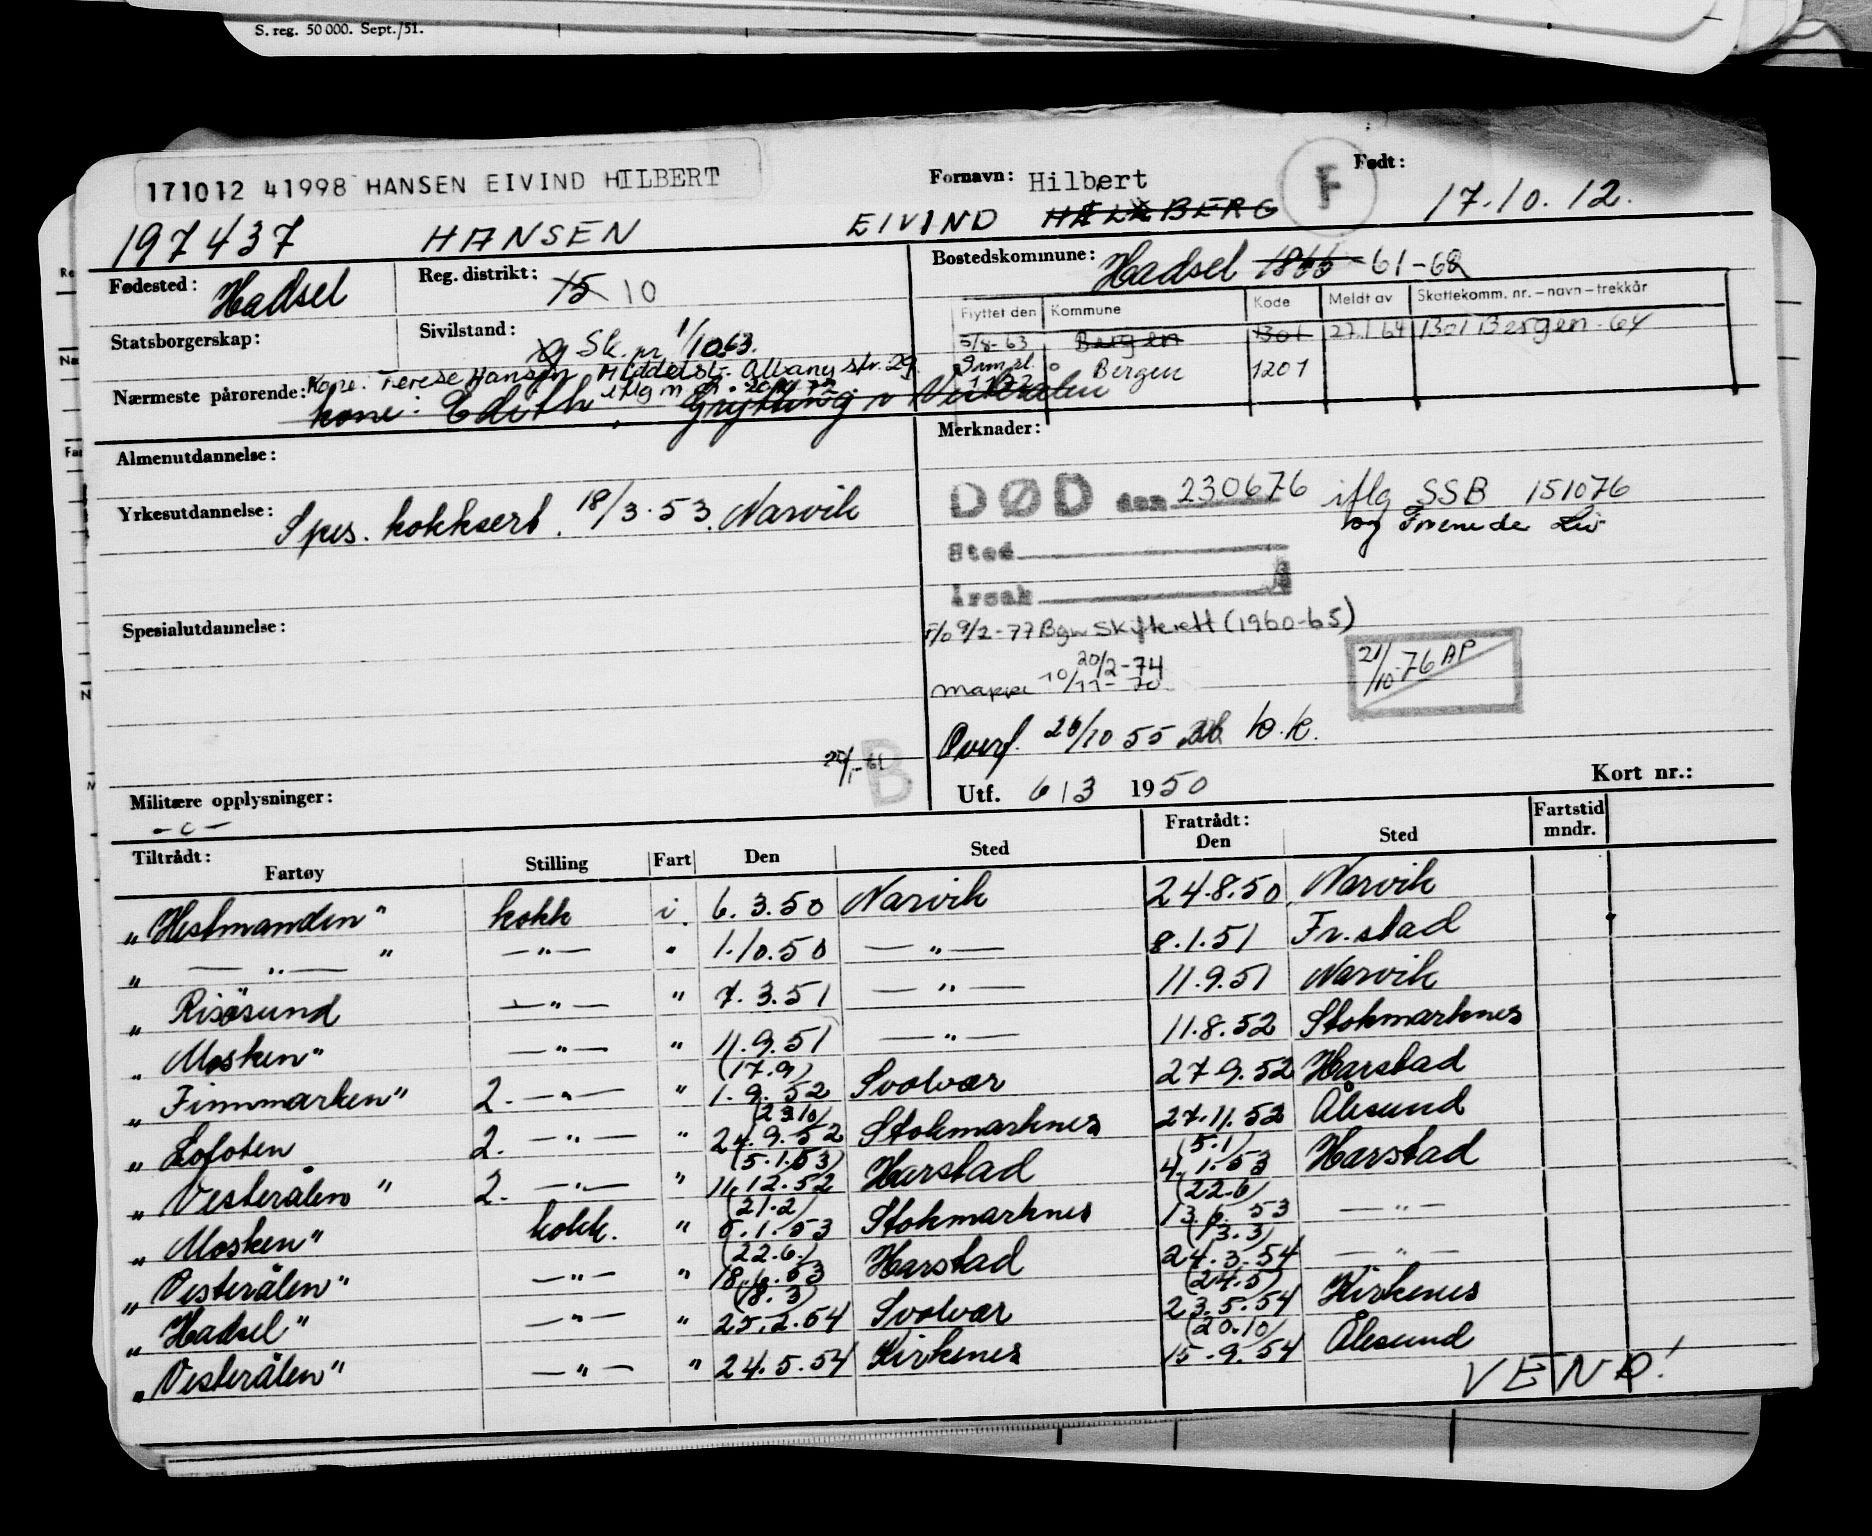 S. reg. 50 000. Sept./51.
171012 41998 HANSEN EIVIND HILBERT
Fornavn: Hilbert
F
Født:
197437 HANSEN EIVIND 17.10.12.
Fødested: Hadsel
Reg. distrikt: 15 10
Bostedskommune: Hadsel 1866 - 61-62
Statsborgerskap:
Sivilstand: Sk. pr 1/10.63.
Flyttet den Kommune Kode Meldt av Skattekomm. nr. – navn – trekkår
5/8-63 Bergen 1301 27.1 64 1301 Bergen - 64
Bergen 1201
Nærmeste pårørende: Kone: Terese Hansen, str. 29.
kone: Edith, Grytting
Almenutdannelse:
Merknader:
Yrkesutdannelse: Spes. kokksert. 18/3.53. Narvik
DØD den 230676 iflg SSB 151076
og Fremde Liv
Sted
Årsak
Spesialutdannelse:
F/o 9/2-77 Bgn Skifterett (1960-65)
20/2-74
mappe 10/11-70
21/10-76 AP
Overf. 26/10 55 h.k.
B
Militære opplysninger:
Utf. 6/3 1950
Kort nr.:
Tiltrådt: Fartøy Stilling Fart Den Sted Fratrådt: Den Sted Fartstid mndr.
"Hestmanden" kokk i. 6.3.50 Narvik 24.8.50 Narvik
" — " — " — " — " 1.10.50 — " — 8.1.51 Fr.stad
" Risøsund — " — " 7.3.51 — " — 11.9.51 Narvik
" Mosken" — " — " 11.9.51 — " — 11.8.52 Stokmarknes
(17.9)
" Finnmarken" 2. — " — " 1.9.52 Svolvær 27.9.52 Harstad
(23 10)
" Lofoten 2. — " — " 24.9.52 Stokmarknes 27.11.52 Ålesund
(5.1.53) (5.1)
" Vesterålen" 2. — " — " 11.12.52 Harstad 4.1.53 Harstad
(21.2) (22.6)
" Mosken" kokk. " 5.1.53 Stokmarknes 13.6.53 — " —
(22.6.) (13.3)
" Vesterålen" — " — " 18.6.53 Harstad 24.3.54 — " —
(18.3) (24.5)
" Hadsel" — " — " 25.2.54 Svolvær 23.5.54 Kirkenes
(20.10)
" Vesterålen" — " — " 24.5.54 Kirkenes 15.9.54 Ålesund
VEND!